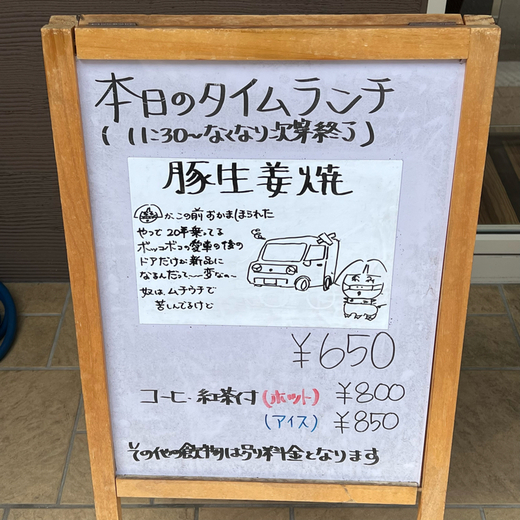 本日のタイムランチ
(11:30～なくなり次第終了)
豚生姜焼
がこの前おかまほられた
やって20年乗ってる
ボッコボコの愛車の後の
ドアだけが新品に
なるんだって～変なの～
奴は、ムチウチで
苦しんでるけど
¥650
コーヒー・紅茶付(ホット) ¥800
(アイス) ¥850
その他の飲物は別料金となります